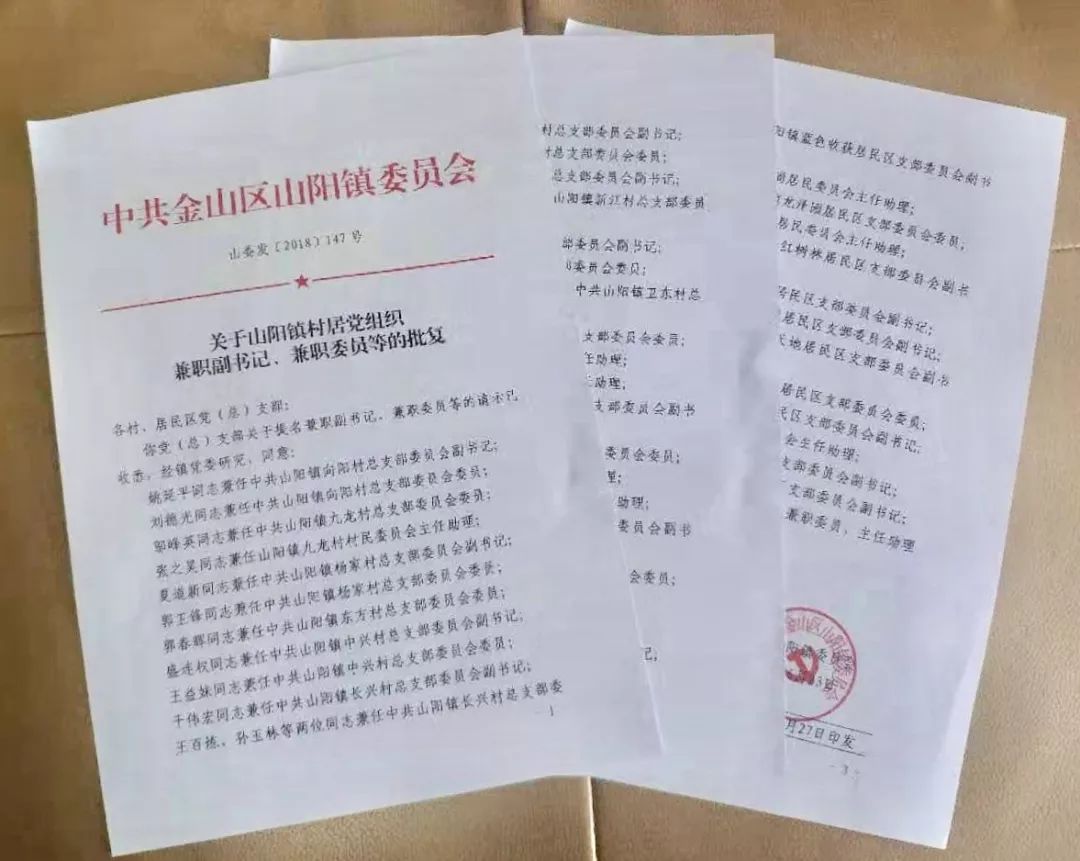 中共金山区山阳镇委员会
山委发〔2018〕147号
关于山阳镇村居党组织
兼职副书记、兼职委员等的批复
各村、居民区党（总）支部：
你党（总）支部关于提名兼职副书记、兼职委员等的请示已
收悉，经镇党委研究，同意：
姚延平同志兼任中共山阳镇向阳村总支部委员会副书记；
刘德光同志兼任中共山阳镇向阳村总支部委员会委员；
邬峰英同志兼任中共山阳镇九龙村总支部委员会委员；
张之昊同志兼任山阳镇九龙村村民委员会主任助理；
夏道新同志兼任中共山阳镇杨家村总支部委员会副书记；
郭王锋同志兼任中共山阳镇杨家村总支部委员会委员；
郭春晖同志兼任中共山阳镇东方村总支部委员会委员；
盛连权同志兼任中共山阳镇中兴村总支部委员会副书记；
王益妹同志兼任中共山阳镇中兴村总支部委员会委员；
干伟宏同志兼任中共山阳镇长兴村总支部委员会副书记；
王百拣、孙玉林等两位同志兼任中共山阳镇长兴村总支部委
- 1
村总支部委员会副书记；
总支部委员会委员；
总支部委员会副书记；
山阳镇新江村总支部委员
部委员会副书记；
委员会委员；
中共山阳镇卫东村总
支部委员会委员；
任助理；
主助理；
支部委员会副书
委员会委员；
助理；
委员会副书
会委员；
记；
阳镇蓝色收获居民区支部委员会副书
居民委员会主任助理；
龙泽园居民区支部委员会委员；
居民委员会主任助理；
红树林居民区支部委员会副书
居民区支部委员会副书记；
居民区支部委员会副书记；
天地居民区支部委员会副书
居民区支部委员会委员；
民区支部委员会副书记；
会主任助理；
支部委员会副书记；
支部委员会副书记；
兼职委员，主任助理
金山区山阳镇委员会
阳镇委
3日
月27日印发
- 3